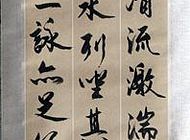 清流激湍
水列坐其
一詠亦足